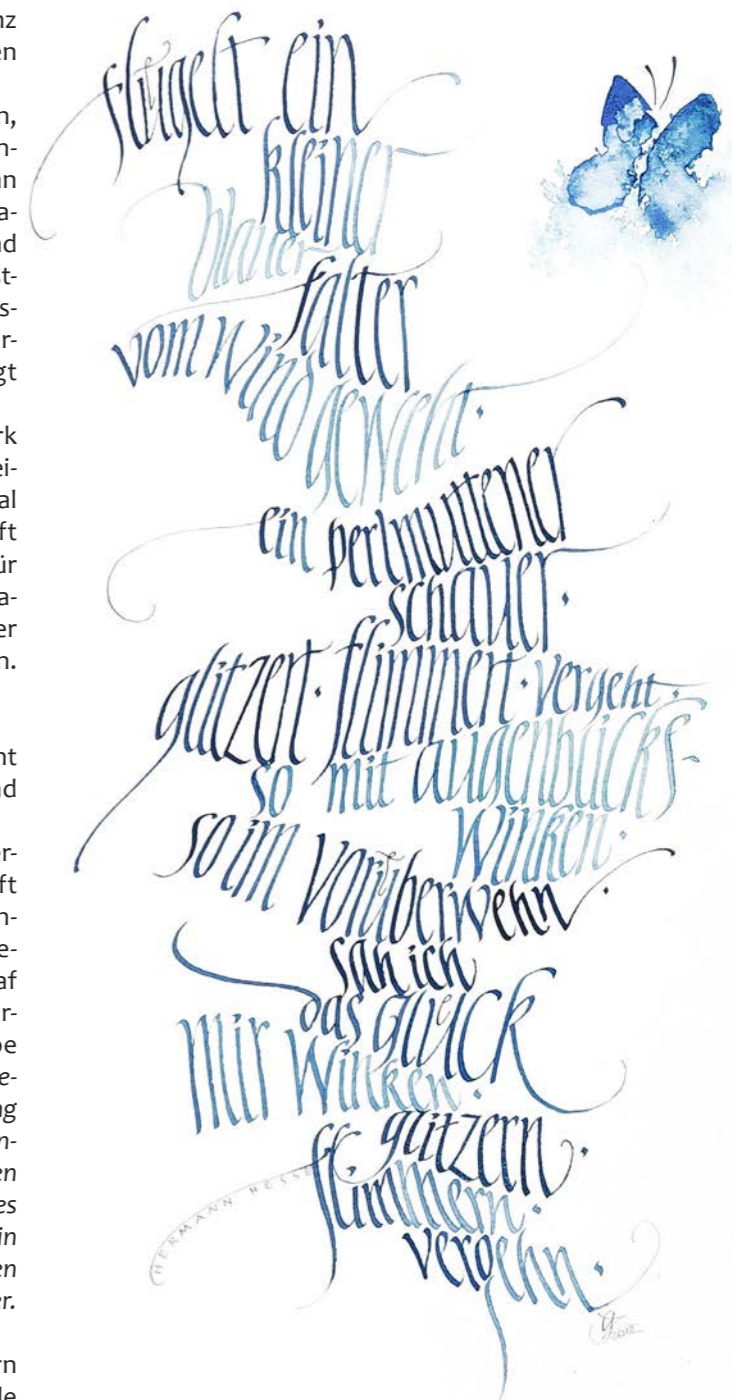 nz
en
n,
n-
an
a-
nd
st-
s-
r-
gt
rk
ei-
al
ft
ür
a-
er
n.
nt
nd
er-
ft
n-
e-
af
r-
be
e-
ng
n-
en
es
in
en
er.
rn
fluͤgelt ein
kleiner
blauer
falter
vom wind
geweht·
ein perlmuttener
schauer·
glitzert· flimmert· vergeht·
so mit augenblicks-
winken·
so im voruͤberwehn·
sah ich
das gluͤck
mir winken·
glitzern·
flimmern·
vergehn·
HERMANN HESSE